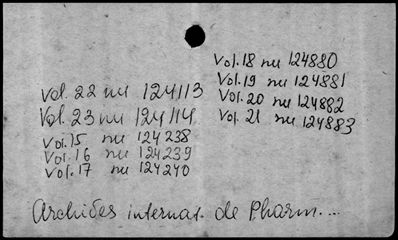 Vol. 22 nu 124113
Vol. 23 nu 124114
Vol. 15 nu 124238
Vol. 16 nu 124239
Vol. 17 nu 124240
Vol. 18 nu 124880
Vol. 19 nu 124881
Vol. 20 nu 124882
Vol. 21 nu 124883
Archives internat. de Pharm...